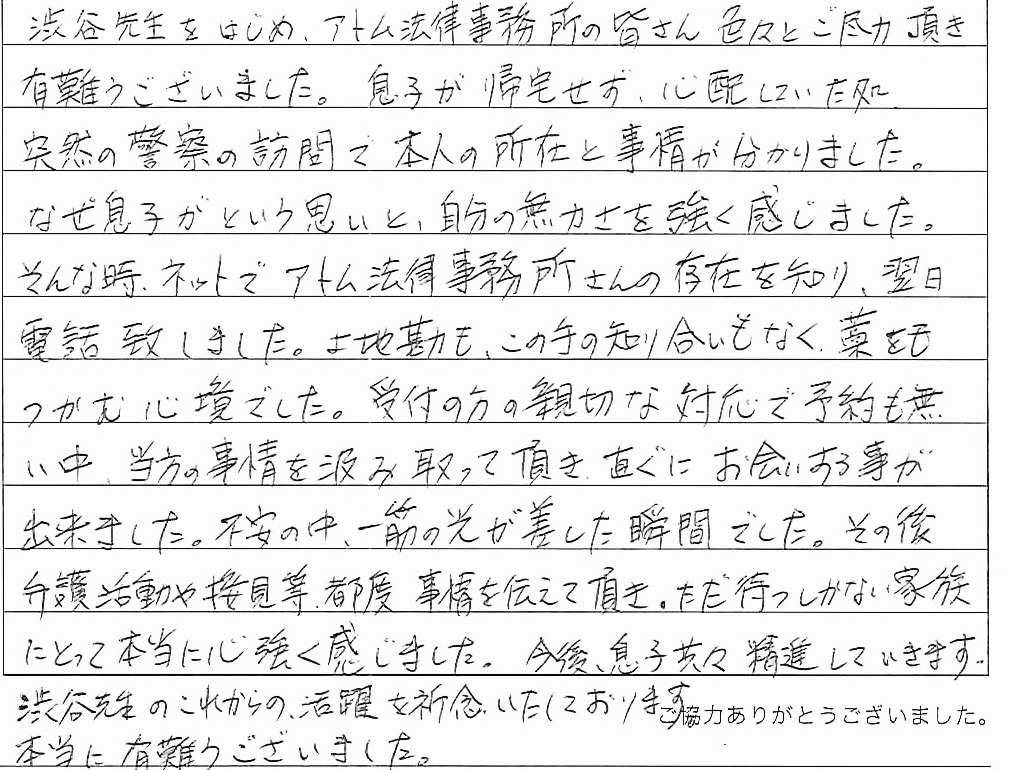 渋谷先生をはじめ、アトム法律事務所の皆さん色々とご尽力頂き
有難うございました。息子が帰宅せず、心配していた処、
突然の警察の訪問で本人の所在と事情が分かりました。
なぜ息子がという思いと、自分の無力さを強く感じました。
そんな時、ネットでアトム法律事務所さんの存在を知り、翌日
電話致しました。土地勘も、この手の知り合いもなく、藁をも
つかむ心境でした。受付の方の親切な対応で予約も無
い中、当方の事情を汲み取って頂き、直ぐにお会いする事が
出来ました。不安の中、一筋の光が差した瞬間でした。その後
弁護活動や接見等、都度事情を伝えて頂き。ただ待つしかない家族
にとって本当に心強く感じました。今後、息子共々精進していきます。
渋谷先生のこれからの、活躍を祈念いたしております。
ご協力ありがとうございました。
本当に有難うございました。